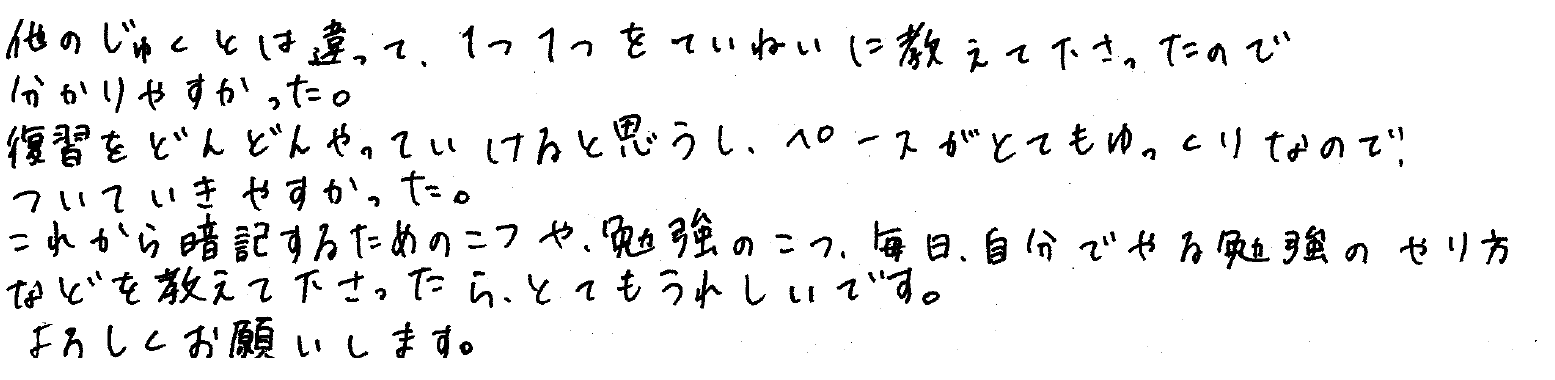 他のじゅくとは違って、1つ1つをていねいに教えて下さったので
分かりやすかった。
復習をどんどんやっていけると思うし、ペースがとてもゆっくりなので、
ついていきやすかった。
これから暗記するためのこつや、勉強のこつ、毎日、自分でやる勉強のやり方
などを教えて下さったら、とてもうれしいです。
よろしくお願いします。